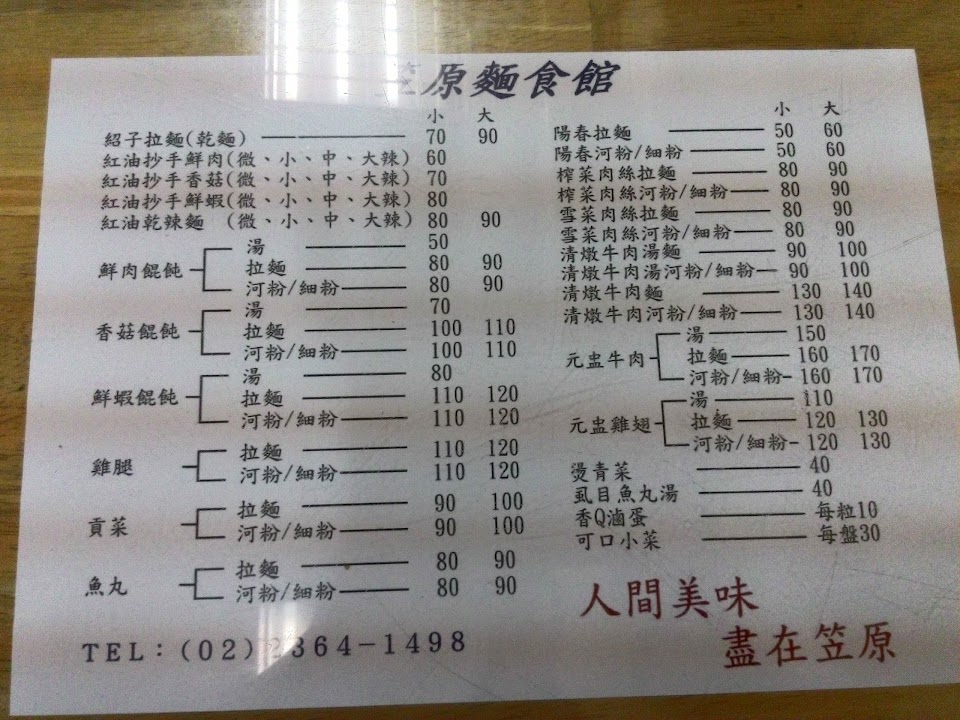 笠原麵食館
小 大
紹子拉麵(乾麵) 70 90
紅油抄手鮮肉(微、小、中、大辣) 60
紅油抄手香菇(微、小、中、大辣) 70
紅油抄手鮮蝦(微、小、中、大辣) 80
紅油乾辣麵 (微、小、中、大辣) 80 90
鮮肉餛飩
湯 50
拉麵 80 90
河粉/細粉 80 90
香菇餛飩
湯 70
拉麵 100 110
河粉/細粉 100 110
鮮蝦餛飩
湯 80
拉麵 110 120
河粉/細粉 110 120
雞腿
拉麵 110 120
河粉/細粉 110 120
貢菜
拉麵 90 100
河粉/細粉 90 100
魚丸
拉麵 80 90
河粉/細粉 80 90
TEL:(02)2364-1498
小 大
陽春拉麵 50 60
陽春河粉/細粉 50 60
榨菜肉絲拉麵 80 90
榨菜肉絲河粉/細粉 80 90
雪菜肉絲拉麵 80 90
雪菜肉絲河粉/細粉 80 90
清燉牛肉湯麵 90 100
清燉牛肉湯河粉/細粉 90 100
清燉牛肉麵 130 140
清燉牛肉河粉/細粉 130 140
元盅牛肉
湯 150
拉麵 160 170
河粉/細粉 160 170
元盅雞翅
湯 110
拉麵 120 130
河粉/細粉 120 130
燙青菜 40
虱目魚丸湯 40
香Q滷蛋 每粒10
可口小菜 每盤30
人間美味
盡在笠原